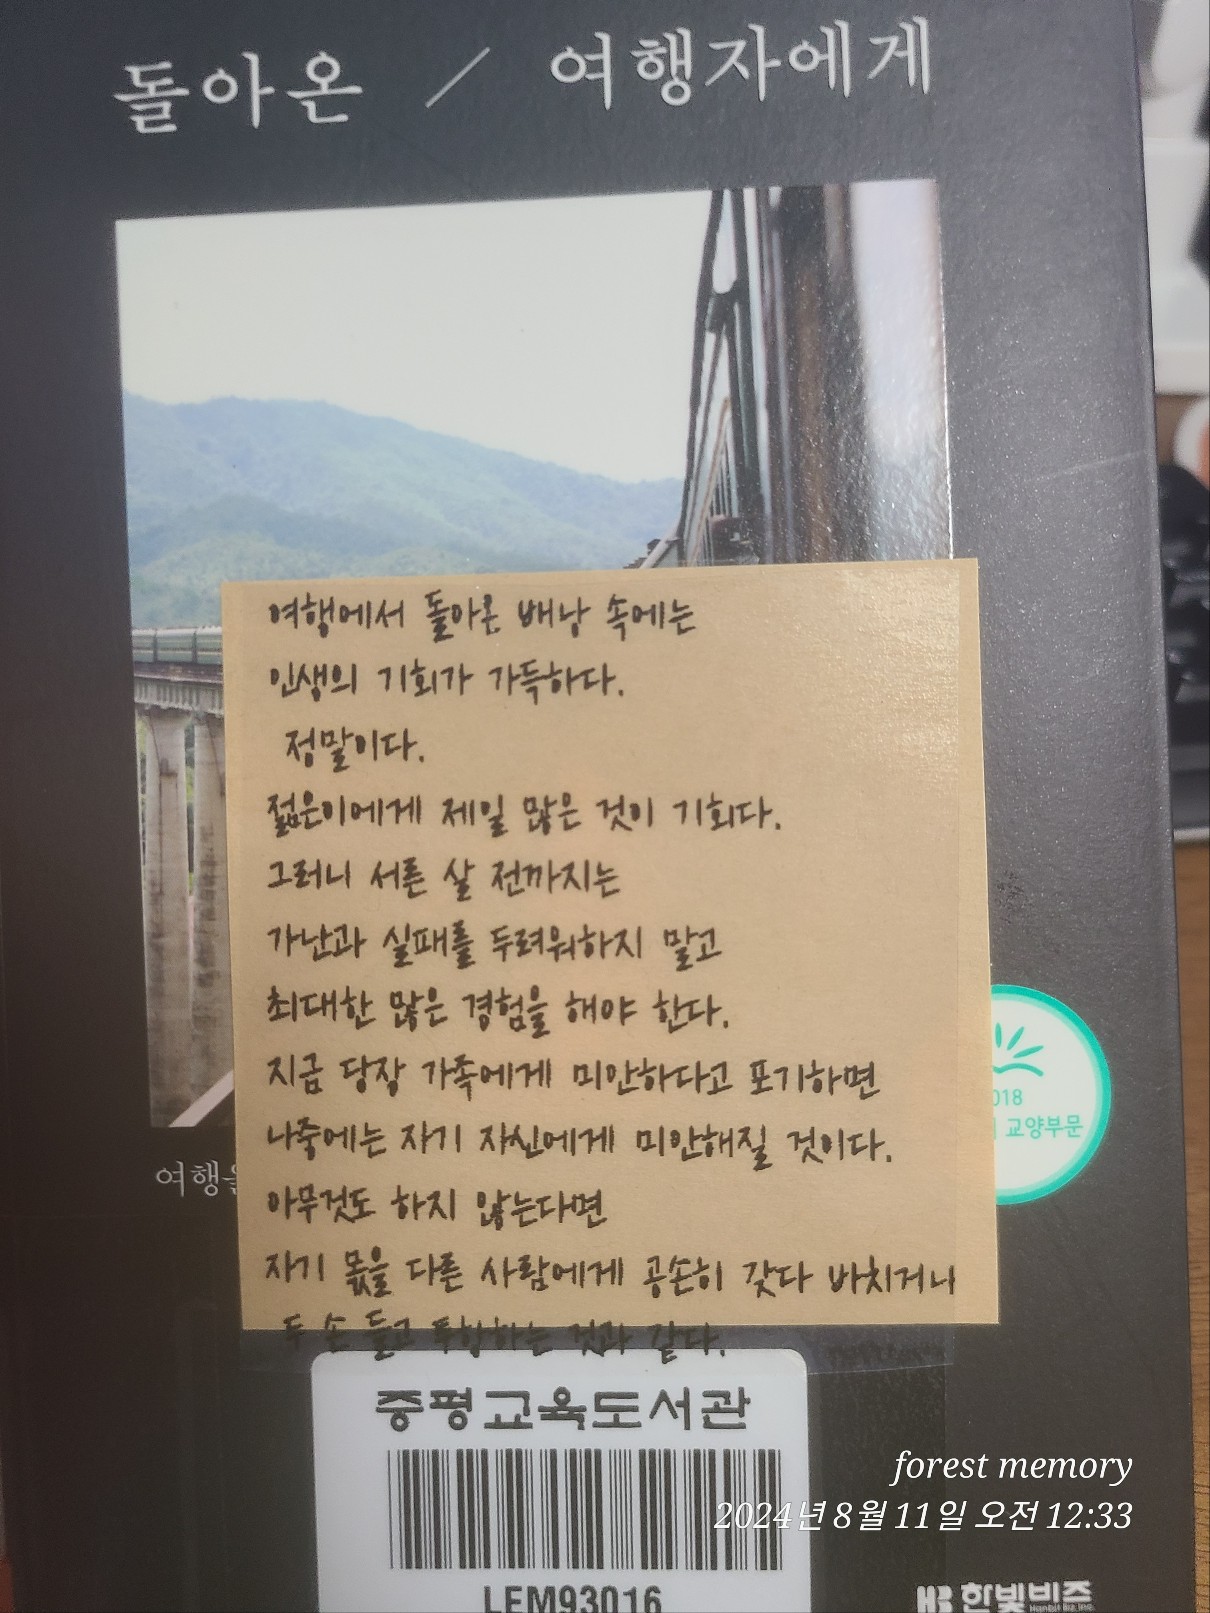 돌아온 / 여행자에게
여행에서 돌아온 배낭 속에는
인생의 기회가 가득하다.
정말이다.
젊은이에게 제일 많은 것이 기회다.
그러니 서른 살 전까지는
가난과 실패를 두려워하지 말고
최대한 많은 경험을 해야 한다.
지금 당장 가족에게 미안하다고 포기하면
나중에는 자기 자신에게 미안해질 것이다.
아무것도 하지 않는다면
자기 몫을 다른 사람에게 공손히 갖다 바치거나
두 손 들고 투항하는 것과 같다.
018
교양부문
여행을
증평교육도서관
LEM93016
forest memory
2024년 8월 11일 오전 12:33
HB 한빛비즈
Hanbit Biz, Inc.